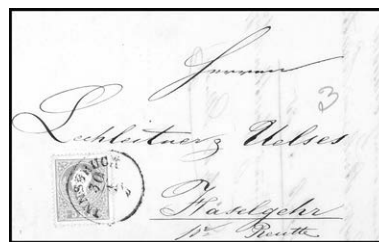 Herrn
3
Lechleitner & Uelses
INNSBRUCK
30
Häselgehr
pr Reutte